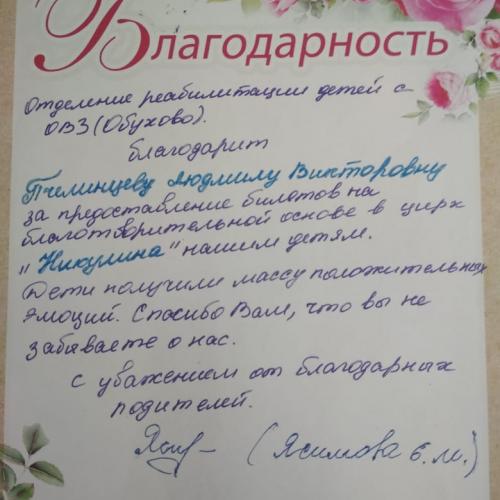 Благодарность
Отделение реабилитации детей с
ОВЗ (Обухово).
благодарит
Пчелинцеву Людмилу Викторовну
за предоставление билетов на
благотворительной основе в цирк
"Никулина" нашим детям.
Дети получили массу положительных
эмоций. Спасибо Вам, что вы не
забываете о нас.
с уважением от благодарных
родителей.
(Ясимова